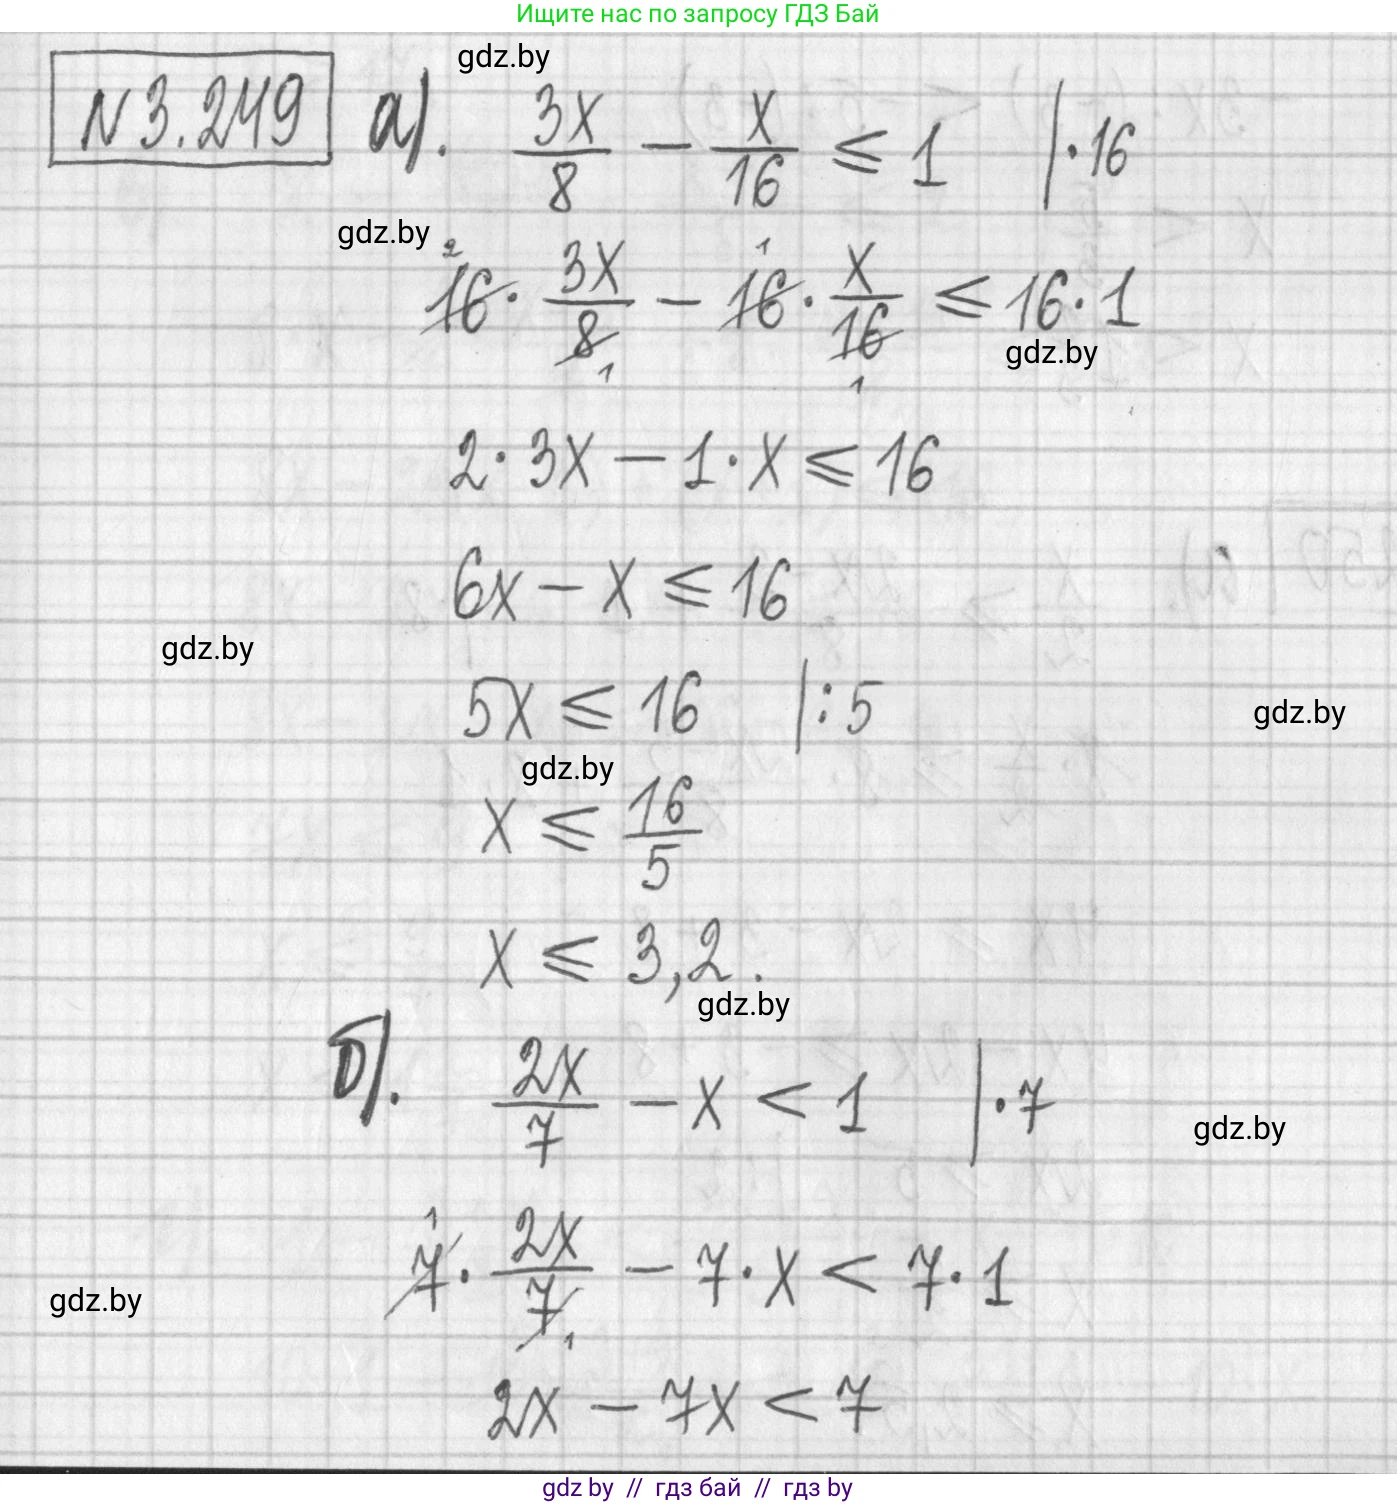 Ищите нас по запросу ГДЗ Бай
gdz.by
N 3.249 а). 3x/8 - x/16 ≤ 1 | · 16
gdz.by
16 · 3x/8 - 16 · x/16 ≤ 16 · 1
gdz.by
2 · 3x - 1 · x ≤ 16
6x - x ≤ 16
gdz.by
5x ≤ 16 | : 5
gdz.by
gdz.by
x ≤ 16/5
x ≤ 3,2.
gdz.by
б). 2x/7 - x < 1 | · 7
gdz.by
7 · 2x/7 - 7 · x < 7 · 1
gdz.by
2x - 7x < 7
gdz by // гдз бай // гдз by